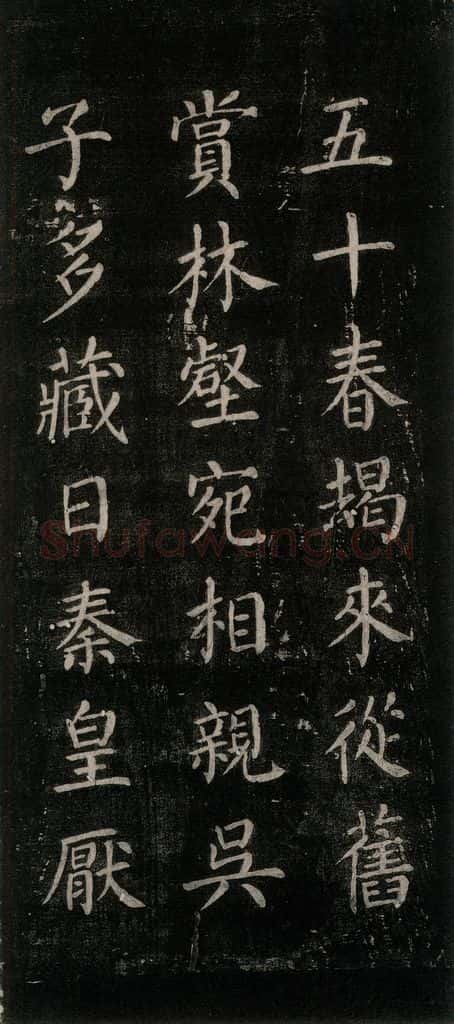 五十春朅來從舊
賞林壑宛相親吳
子多藏日秦皇厭
Shufawang.CN